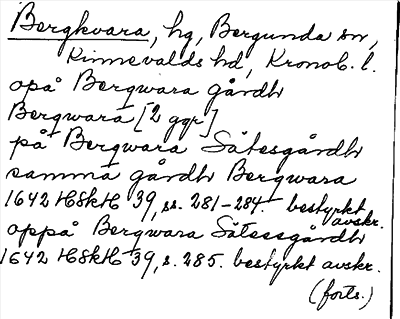 Bergkvara, hg, Bergunda sn,
Kinnevalds hd, Kronob. l.
opå Bergwara gårdh
Bergwara [2 ggr]
på Bergwara Sätesgårdh
samma gårdh Bergwara
1642 HSkH 39, ss. 281-284. bestyrkt avskr.
oppå Bergwara Sätessgårdh
1642 HSkH 39, s. 285. bestyrkt avskr.
(forts.)